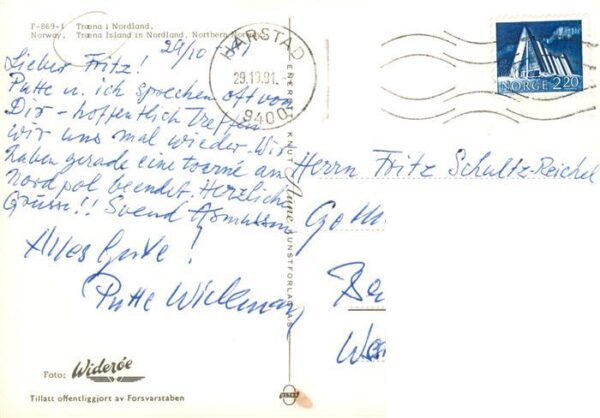 F-869-1 Træna i Nordland.
Norway. Træna Island in Nordland, Northern Norway
29/10-81
Lieber Fritz!
Putte u. ich sprechen oft von
Dir - hoffentlich treffen
wir uns mal wieder. Wir
haben gerade eine toerné am
Nordpol beendet. Herzliche
Grüsse!! Svend Asmussen
Alles Gute!
Putte Wickman
Foto: Widerøe
Tillatt offentliggjort av Forsvarstaben
ENERETT KNUT Aune KUNSTFORLAG A.S
ULTRA
HARSTAD
29.10.81.
9400
NORGE 220
Herrn Fritz Schultz-Reichel